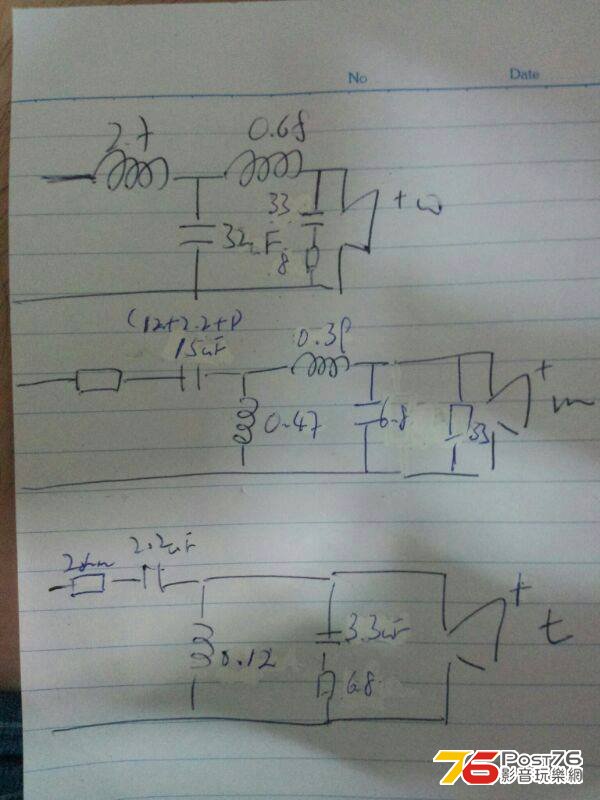 No
Date
2.7
0.68
33
32uF
8
+ w
(12+2.2+1)
15uF
0.39
0.47
6.8
33
+
m
2ohm
2.2uF
0.12
3.3uF
68
+
t
76 POST76
影音玩樂網